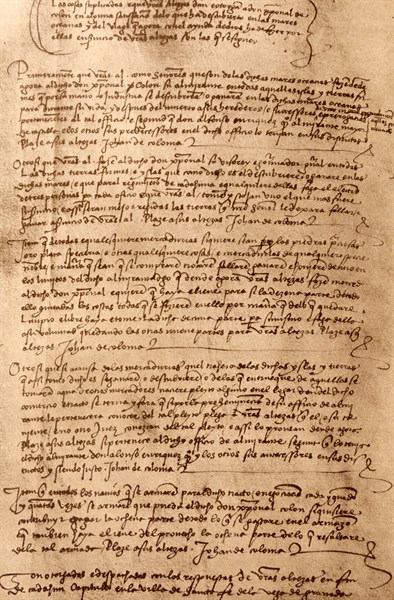 Las cosas suplicadas que vras altezas dan e otorgan a don xpoual de
colon en alguna satisfacion delo que ha descubierto en las mares
oceanas y del viage que agora con el ayuda de dios ha de fazer por
ellas en seruicio de vras altezas son las que se siguen
Primeramente que vras al. como Senores que son delas dichas mares oceanas fazen dende
agora al dicho don xpoual Colon su almirante en todas aquellas yslas y tierras fir
mes que por su mano o industria se descubriran o ganaran en las dichas mares oceanas
para durante su vida y despues del muerto a sus herederos e successores
perteneçientes al tal officio e segund don alfonso enrriquez almirante mayor
de castilla e los otros sus predecessores en el dicho officio lo tenian en sus districtos
Plaze a sus altezas Johan de coloma
Otrosi que vras al. fazen al dicho don xpoual su visorey e gouernador general en todas
las dichas tierras firmes e yslas que como dicho es el descubriere o ganare en las
dichas mares e que para el regimiento de cada huna e qualquiere dellas faga el eleccion
de tres personas para cada oficio e que vras al. tomen y scojan uno el que mas fuere
su seruicio e assi seran mejor regidas las tierras que nro Senor le dexara fallar e
ganar a seruicio de vras al. Plaze a sus altezas Johan de coloma
Item que de todas e qualesquiere mercadurias siquiere sean perlas piedras preciosas
oro plata specieria e otras qualesquiere cosas e mercadurias de qualquiere specie
nombre e manera que sean que se compraren trocaren fallaren ganaren e houieren dentro en
los limites del dicho almirantadgo que dende agora vras altezas fazen merced
al dicho don xpoual e quieren que haya e lieue para si la dezena parte de todo
ello quitadas las costas todas que se fizieren en ello por manera que delo que quedare
limpio e libre haya e tome la dicha decima parte para si mismo e faga dello
a su voluntad quedando las otras nueue partes para vras altezas. Plaze a sus
altezas Johan de coloma
Otrosi que si a causa delas mercadurias quel trahera delas dichas yslas y tierras
que assi como dicho es se ganaren o descubrieren o delas que en trueque de aquellas se
tomaren aqua de otros mercadores naciere pleyto alguno en el logar donde el dicho
comercio e tracto se terna y fara que si por la preheminencia de su officio de almi
rante le pertenecera conocer del tal pleyto plega a vras altezas que el o su te
niente e no otro Juez conozcan de tal pleyto e assi lo prouean dende agora.
Plaze a sus altezas si pertenece al dicho officio de almirante segunt que lo tenia
el dicho almirante don alonso enrriquez y los otros sus antecessores en sus dis
trictos y siendo justo Johan de coloma
Item que en todos los nauios que se armaren para el dicho tracto e negociacion cada y quando
y quantas vezes se armaren que pueda el dicho don xpoual colon si quisiere
contribuyr e pagar la ochena parte de todo lo que se gastare en el armazon
e que tanbien haya e lieue del prouecho la ochena parte delo que resultare
dela tal armada Plaze a sus altezas Johan de coloma
Son otorgadas e despachadas con las respuestas de vras altezas en fin
de cada hun capitulo en la villa de santa fe dela vega de granada